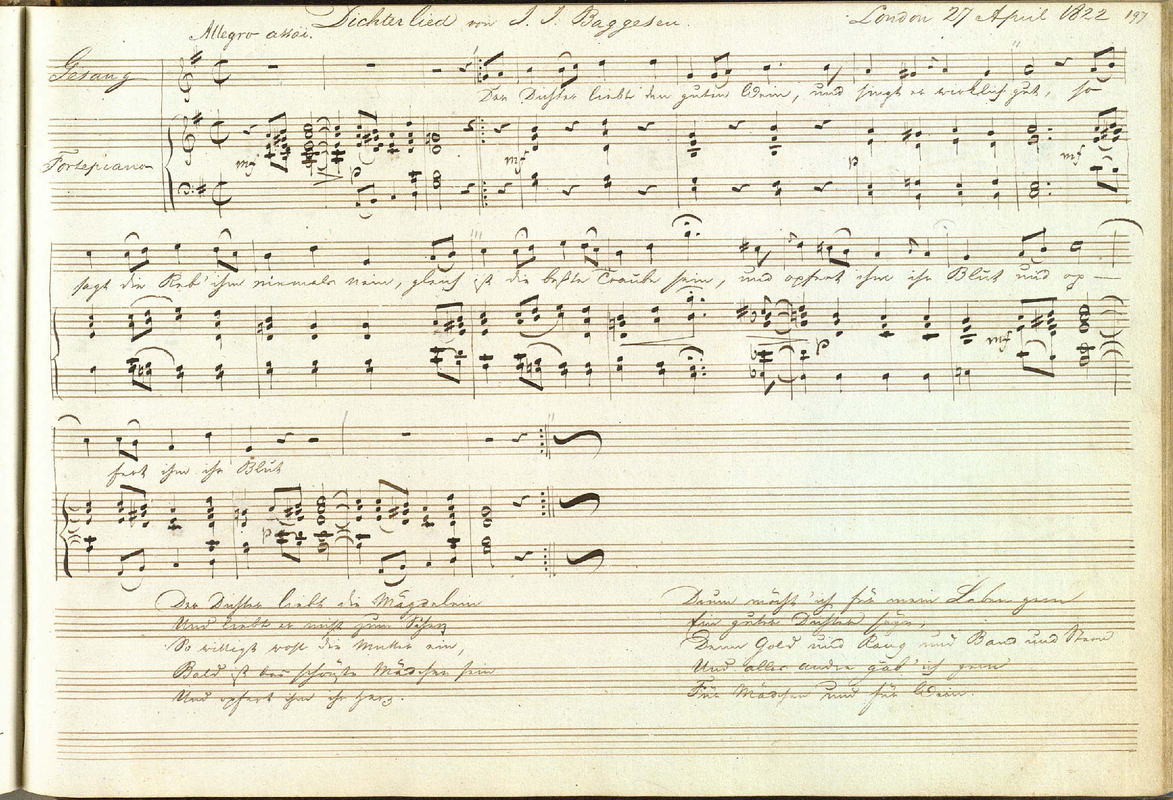 Dichterlied von J. J. Baggesen. London 27 April 1822 197
Allegro assai.
Gesang
Der Dichter liebt den guten Wein, und singt er wirklich gut, so
Fortepiano
mf p mf p mf
sagt die Reb' ihm niemals nein, gleich ist die beßte Traube sein, und opfert ihm ihr Blut und op-
p mf
fert ihm ihr Blut
p
Der Dichter liebt die Mägdelein
Und liebt er nicht zum Scherz
So willigt wohl die Mutter ein,
Bald ist das schönste Mädchen sein
Und opfert ihm ihr Herz.
Drum möcht' ich für mein Leben gern
Ein guter Dichter seyn,
Denn Gold und Rang und Band und Stern
Und alles andre gäb' ich gern
Für Mädchen und für Wein.